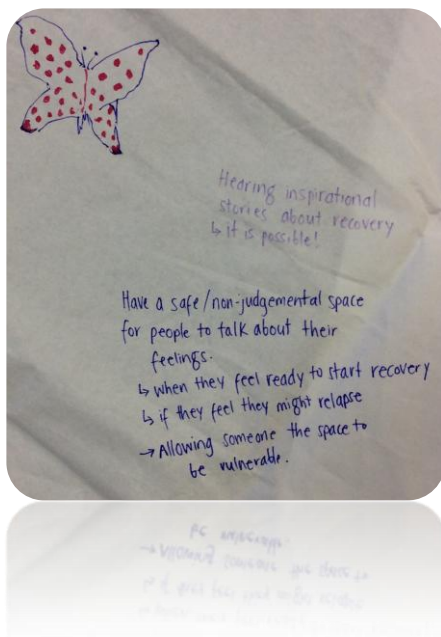 Hearing inspirational
stories about recovery
↳ it is possible!
Have a safe/non-judgemental space
for people to talk about their
feelings.
↳ when they feel ready to start recovery
↳ if they feel they might relapse
→ Allowing someone the space to
be vulnerable.